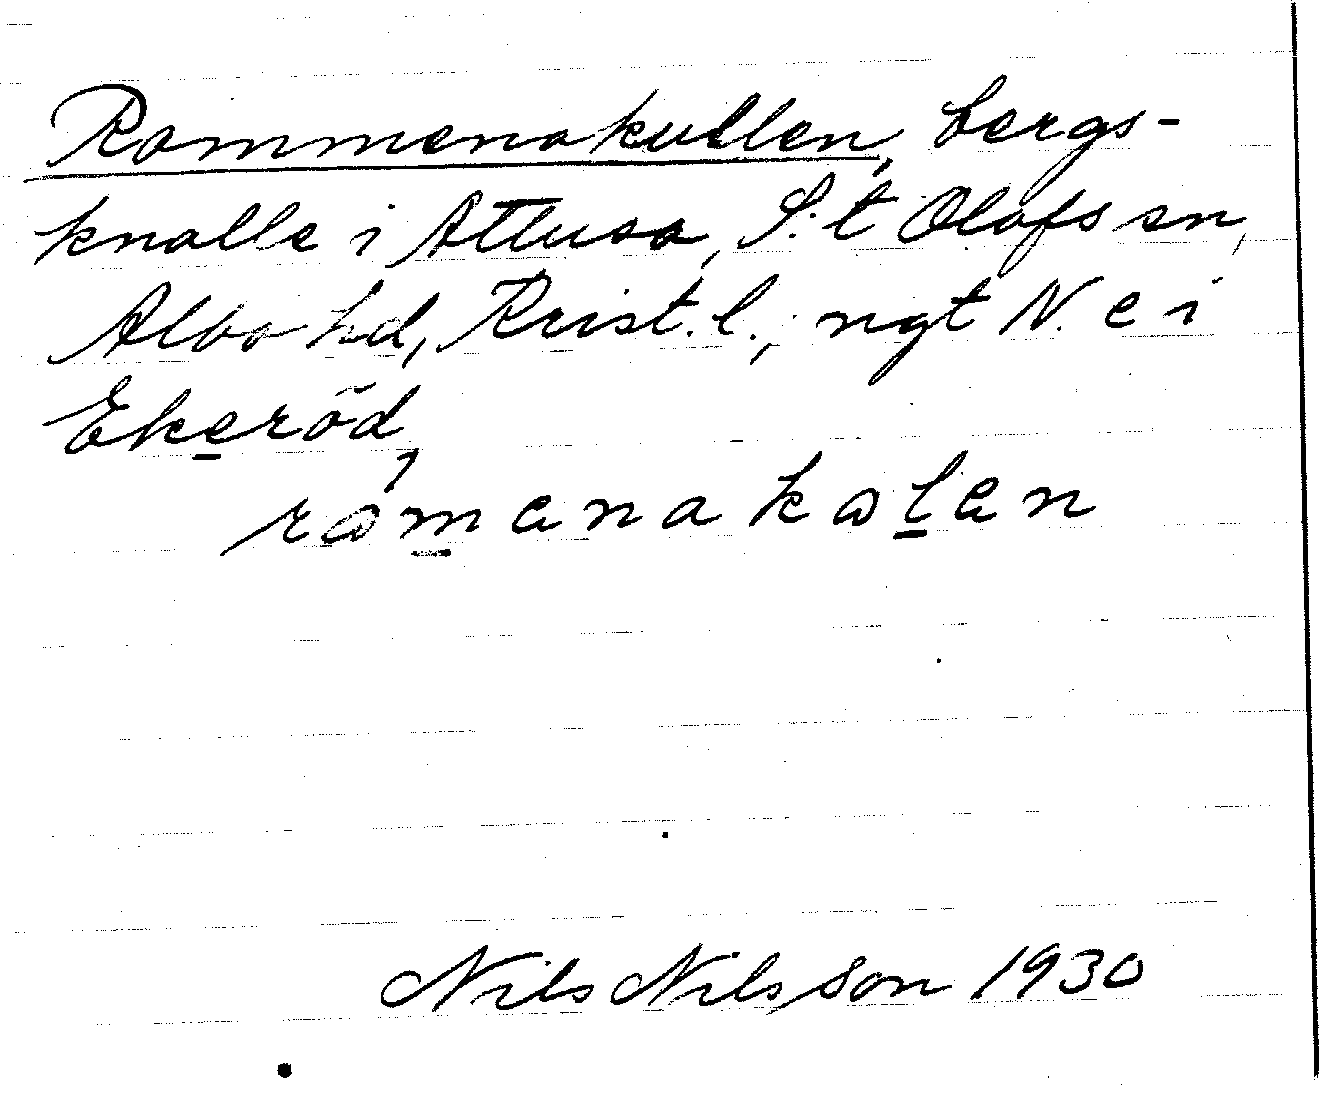 Rammenakullen, bergs-
knalle i Attusa, S:t Olofs sn,
Albo hd, Krist. l., ngt N. e i
Ekeröd
råmenakalen
Nils Nilsson 1930